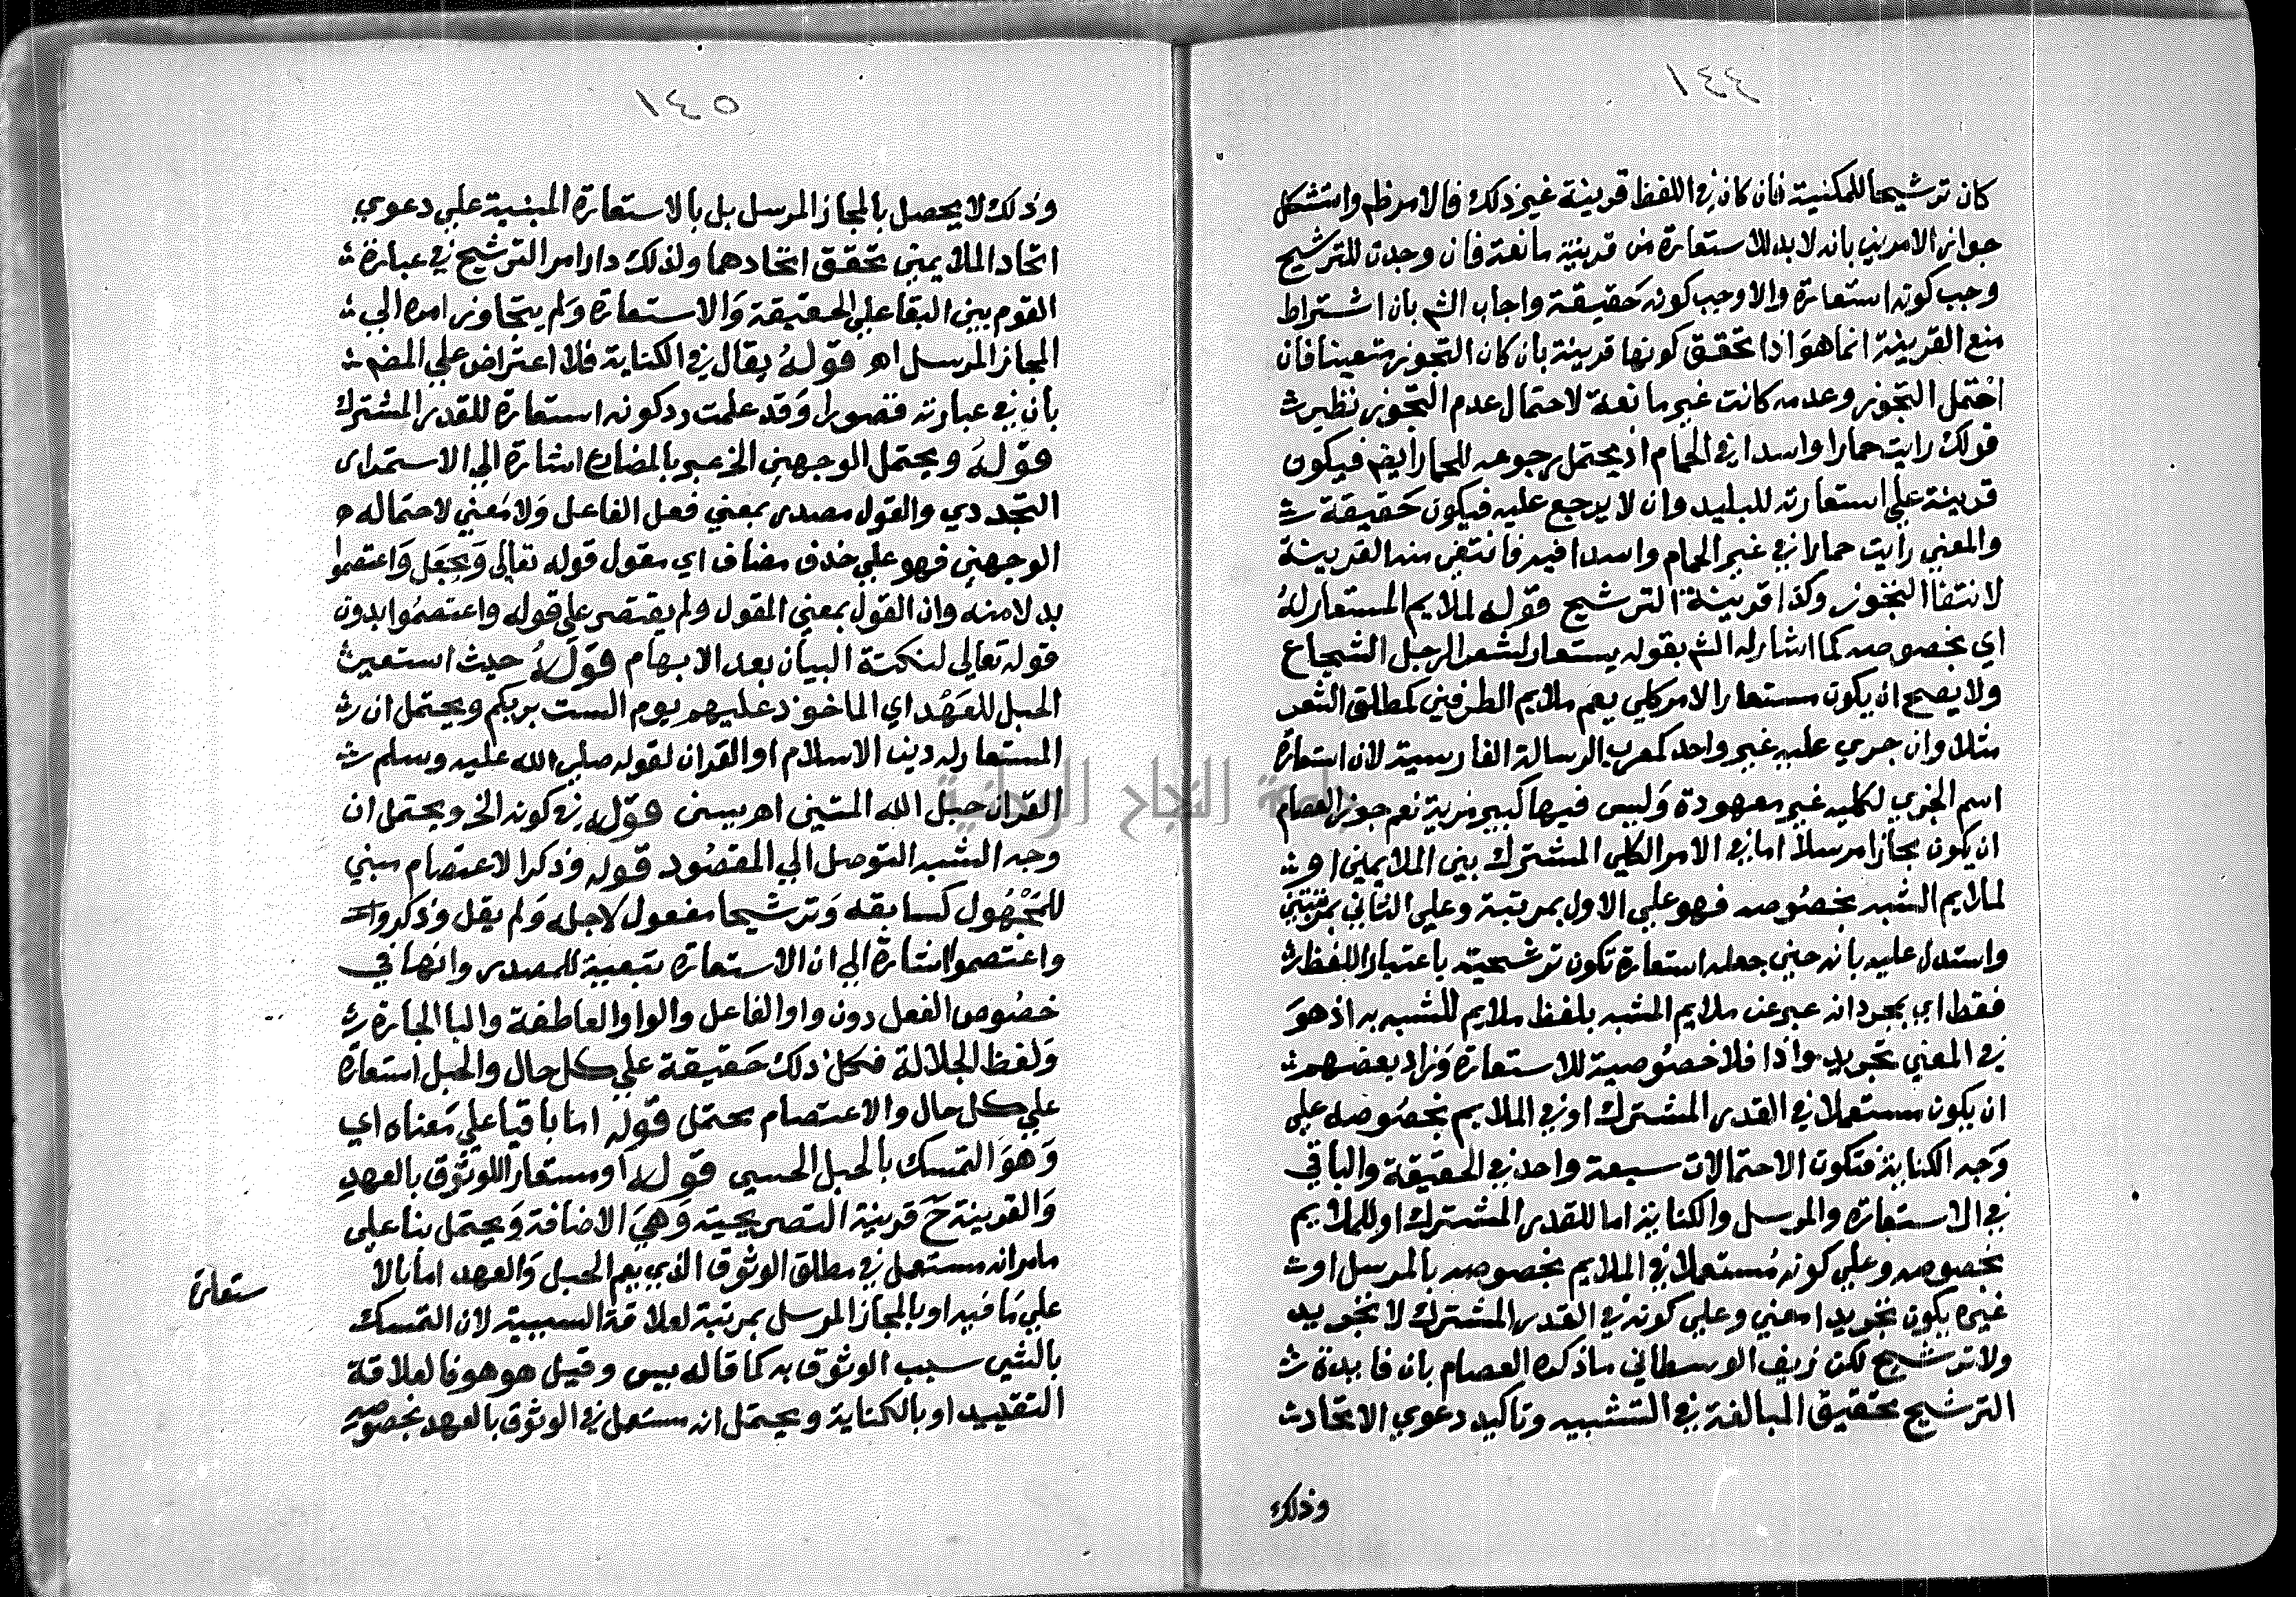 ١٤٤
كان ترشيحا للمكنية فان كان في اللفظ قرينة غير ذلك فالامر ظم واستشكل
جواز الامرين بانه لابد للاستعارة من قرينة مانعة فان وجدت للترشيح
وجب كونه استعارة والا وجب كونه حقيقة واجاب الشم بان اشتراط
منع القرينة انما هو اذا تحقق كونها قرينة بان كان التجوز متعينا فان
احتمل التجوز وعدمه كانت غير مانعة لاحتمال عدم التجوز نظير
قولك رايت حمارا واسدا في الحمام اذ يحتمل رجوعه للحمار ايضم فيكون
قرينة على استعارته للبليد وان لا يرجع عليه فيكون حقيقة
والمعني رايت حمارا في غير الحمام واسدا فيه فانتفي منه القرينة
لانتفا التجوز وكذا قرينة الترشيح قوله لملايم المستعار له
اي بخصوصه كما اشار له الشم بقوله يستعار لشعر الرجل الشجاع
ولا يصح ان يكون مستعارا لامر كلي يعم ملايم الطرفين كمطلق الشعر
مثلا وان جري عليه غير واحد كمعرب الرسالة الفارسية لان استعارة
اسم الجزي لكليه غير معهودة وليس فيها كبير مزية نعم جوز العصام
ان يكون مجازا مرسلا اما في الامر الكلي المشترك بين الملايمين او
لملايم الشبه بخصوصه فهو علي الاول بمرتبة وعلي الثاني بمرتبتين
واستدل عليه بانه حين جعله استعارة تكون ترشيحيته باعتبار اللفظ
فقط اي بمجرد انه عبر عن ملايم المشبه بلفظ ملايم للشبه به اذ هو
في المعني تجريد واذا فلا خصوصية للاستعارة وزاد بعضهم
ان يكون مستعملا في القدر المشترك او في الملايم بخصوصه علي
وجه الكناية فتكون الاحتمالات سبعة واحد في الحقيقة والباقي
في الاستعارة والمرسل والكناية اما للقدر المشترك او للملايم
بخصوصه وعلي كونه مستعملا في الملايم بخصوصه بالمرسل او
غيره يكون تجريدا معني وعلي كونه في القدر المشترك لا تجريد
ولا ترشيح لكن زيف الاوسطاني ما ذكره العصام بان فايدة
الترشيح تحقيق المبالغة في التشبيه وتاكيد دعوي الاتحاد
وذلك
١٤٥
وذلك لا يحصل بالمجاز المرسل بل بالاستعارة المبنية علي دعوي
اتحاد الملايمين تحقق اتحادهما ولذلك دار امر الترشيح في عبارة
القوم بين البقا علي الحقيقة والاستعارة ولم يتجاوز امره الي
المجاز المرسل اه قوله يقال في الكناية فلا اعتراض علي المضم
بان في عبارته قصورا وقد علمت رد كونه استعارة للقدر المشترك
قوله ويحتمل الوجهين الخ عبر بالمضارع اشارة الي الاستمرار
التجددي والقول مصدر بمعني فعل الفاعل ولا معني لاحتماله
الوجهين فهو علي حذف مضاف اي مقول قوله تعالي ويجعل واعتصموا
بدلا منه وان القول بمعني المقول ولم يقتصر علي قوله واعتصموا بدون
قوله تعالي لنكتة البيان بعد الابهام قوله حيث استعير
الحبل للعهد اي الماخوذ عليهم يوم الست بربكم ويحتمل ان
المستعار له دين الاسلام او القران لقوله صلي الله عليه وسلم
القران حبل الله المتين اه يسن قوله في كونه الخ ويحتمل ان
وجه الشبه التوصل الي المقصود قوله وذكر الاعتصام مبني
للمجهول كسابقه وترشيحا مفعول لاجله ولم يقل وذكروا
واعتصموا اشارة الي ان الاستعارة تبعية للمصدر وانها في
خصوص الفعل دون واو الفاعل والواو العاطفة والبا الجارة
ولفظ الجلالة فكل ذلك حقيقة علي كل حال والحبل استعارة
علي كل حال والاعتصام محتمل قوله اما باقيا علي معناه اي
وهو التمسك بالحبل الحسي قوله او مستعارا للوثوق بالعهد
والقرينة ح قرينة التصريحية وهي الاضافة ويحتمل بنا علي
مامر انه مستعمل في مطلق الوثوق الذي يعم الحبل والعهد اما بالا
ستعارة
علي ما فيه او بالمجاز المرسل بمرتبة لعلاقة السببية لان التمسك
بالشي سبب الوثوق به كما قاله يس وقيل هو هو فالعلاقة
التقييد او بالكناية ويحتمل انه مستعمل في الوثوق بالعهد بخصوصه